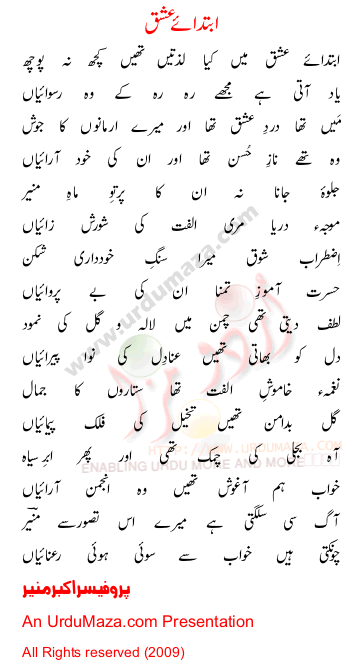 ابتدائے عشق
ابتدائے عشق میں کیا لذتیں تھیں کچھ نہ پوچھ
یاد آتی ہے مجھے رہ رہ کے وہ رسوائیاں
میں تھا دردِ عشق تھا اور میرے ارمانوں کا جوش
وہ تھے نازِ حُسن تھا اور ان کی خود آرائیاں
جلوۂ جانا نہ ان کا پرتوِ ماہِ منیر
موجۂ دریا مری الفت کی شورش زائیاں
اِضطراب شوق میرا سنگِ خودداری شکن
حسرت آموزِ تمنا ان کی بے پروائیاں
لطف دیتی تھی چمن میں لالہ و گل کی نمود
دل کو بھاتی تھیں عنادِل کی نوا پیرائیاں
نغمہء خاموشِ الفت تھا ستاروں کا جمال
گل بدامن تھیں تخیل کی فلک پیمائیاں
آہ بجلی کی چمک تھی اور پھر ابرِ سیاہ
خواب ہم آغوش تھیں وہ انجمن آرائیاں
آگ سی سلگتی ہے میرے اس تصور سے منیرؔ
چونکتی ہیں خواب سے سوئی ہوئی رعنائیاں
پروفیسر اکبر منیر
An UrduMaza.com Presentation
All Rights reserved (2009)
www.urdumaza.com
اردو مزا
HTTP://WWW.UrduMaza.COM
ENABLING URDU MORE AND MORE